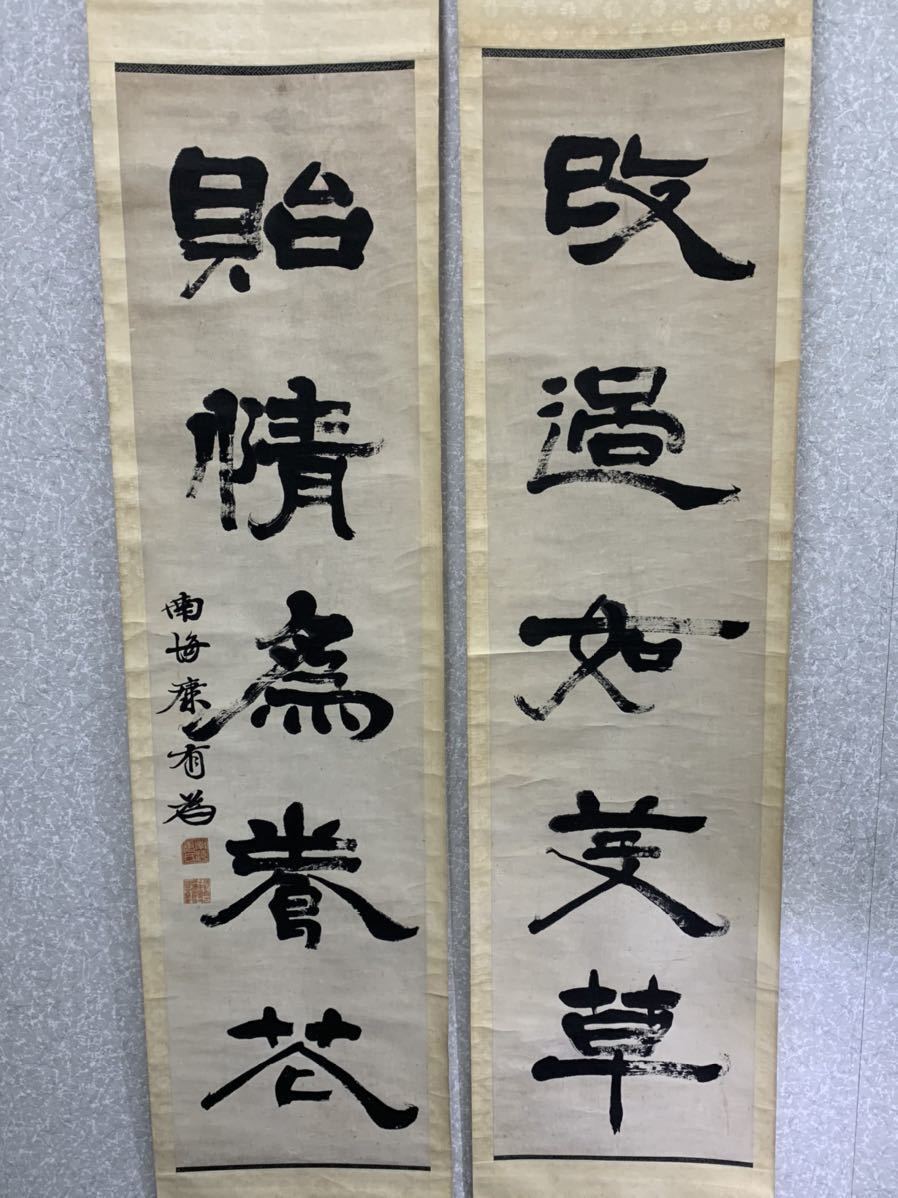 改過如芟草
貽情為養花
南海康有為